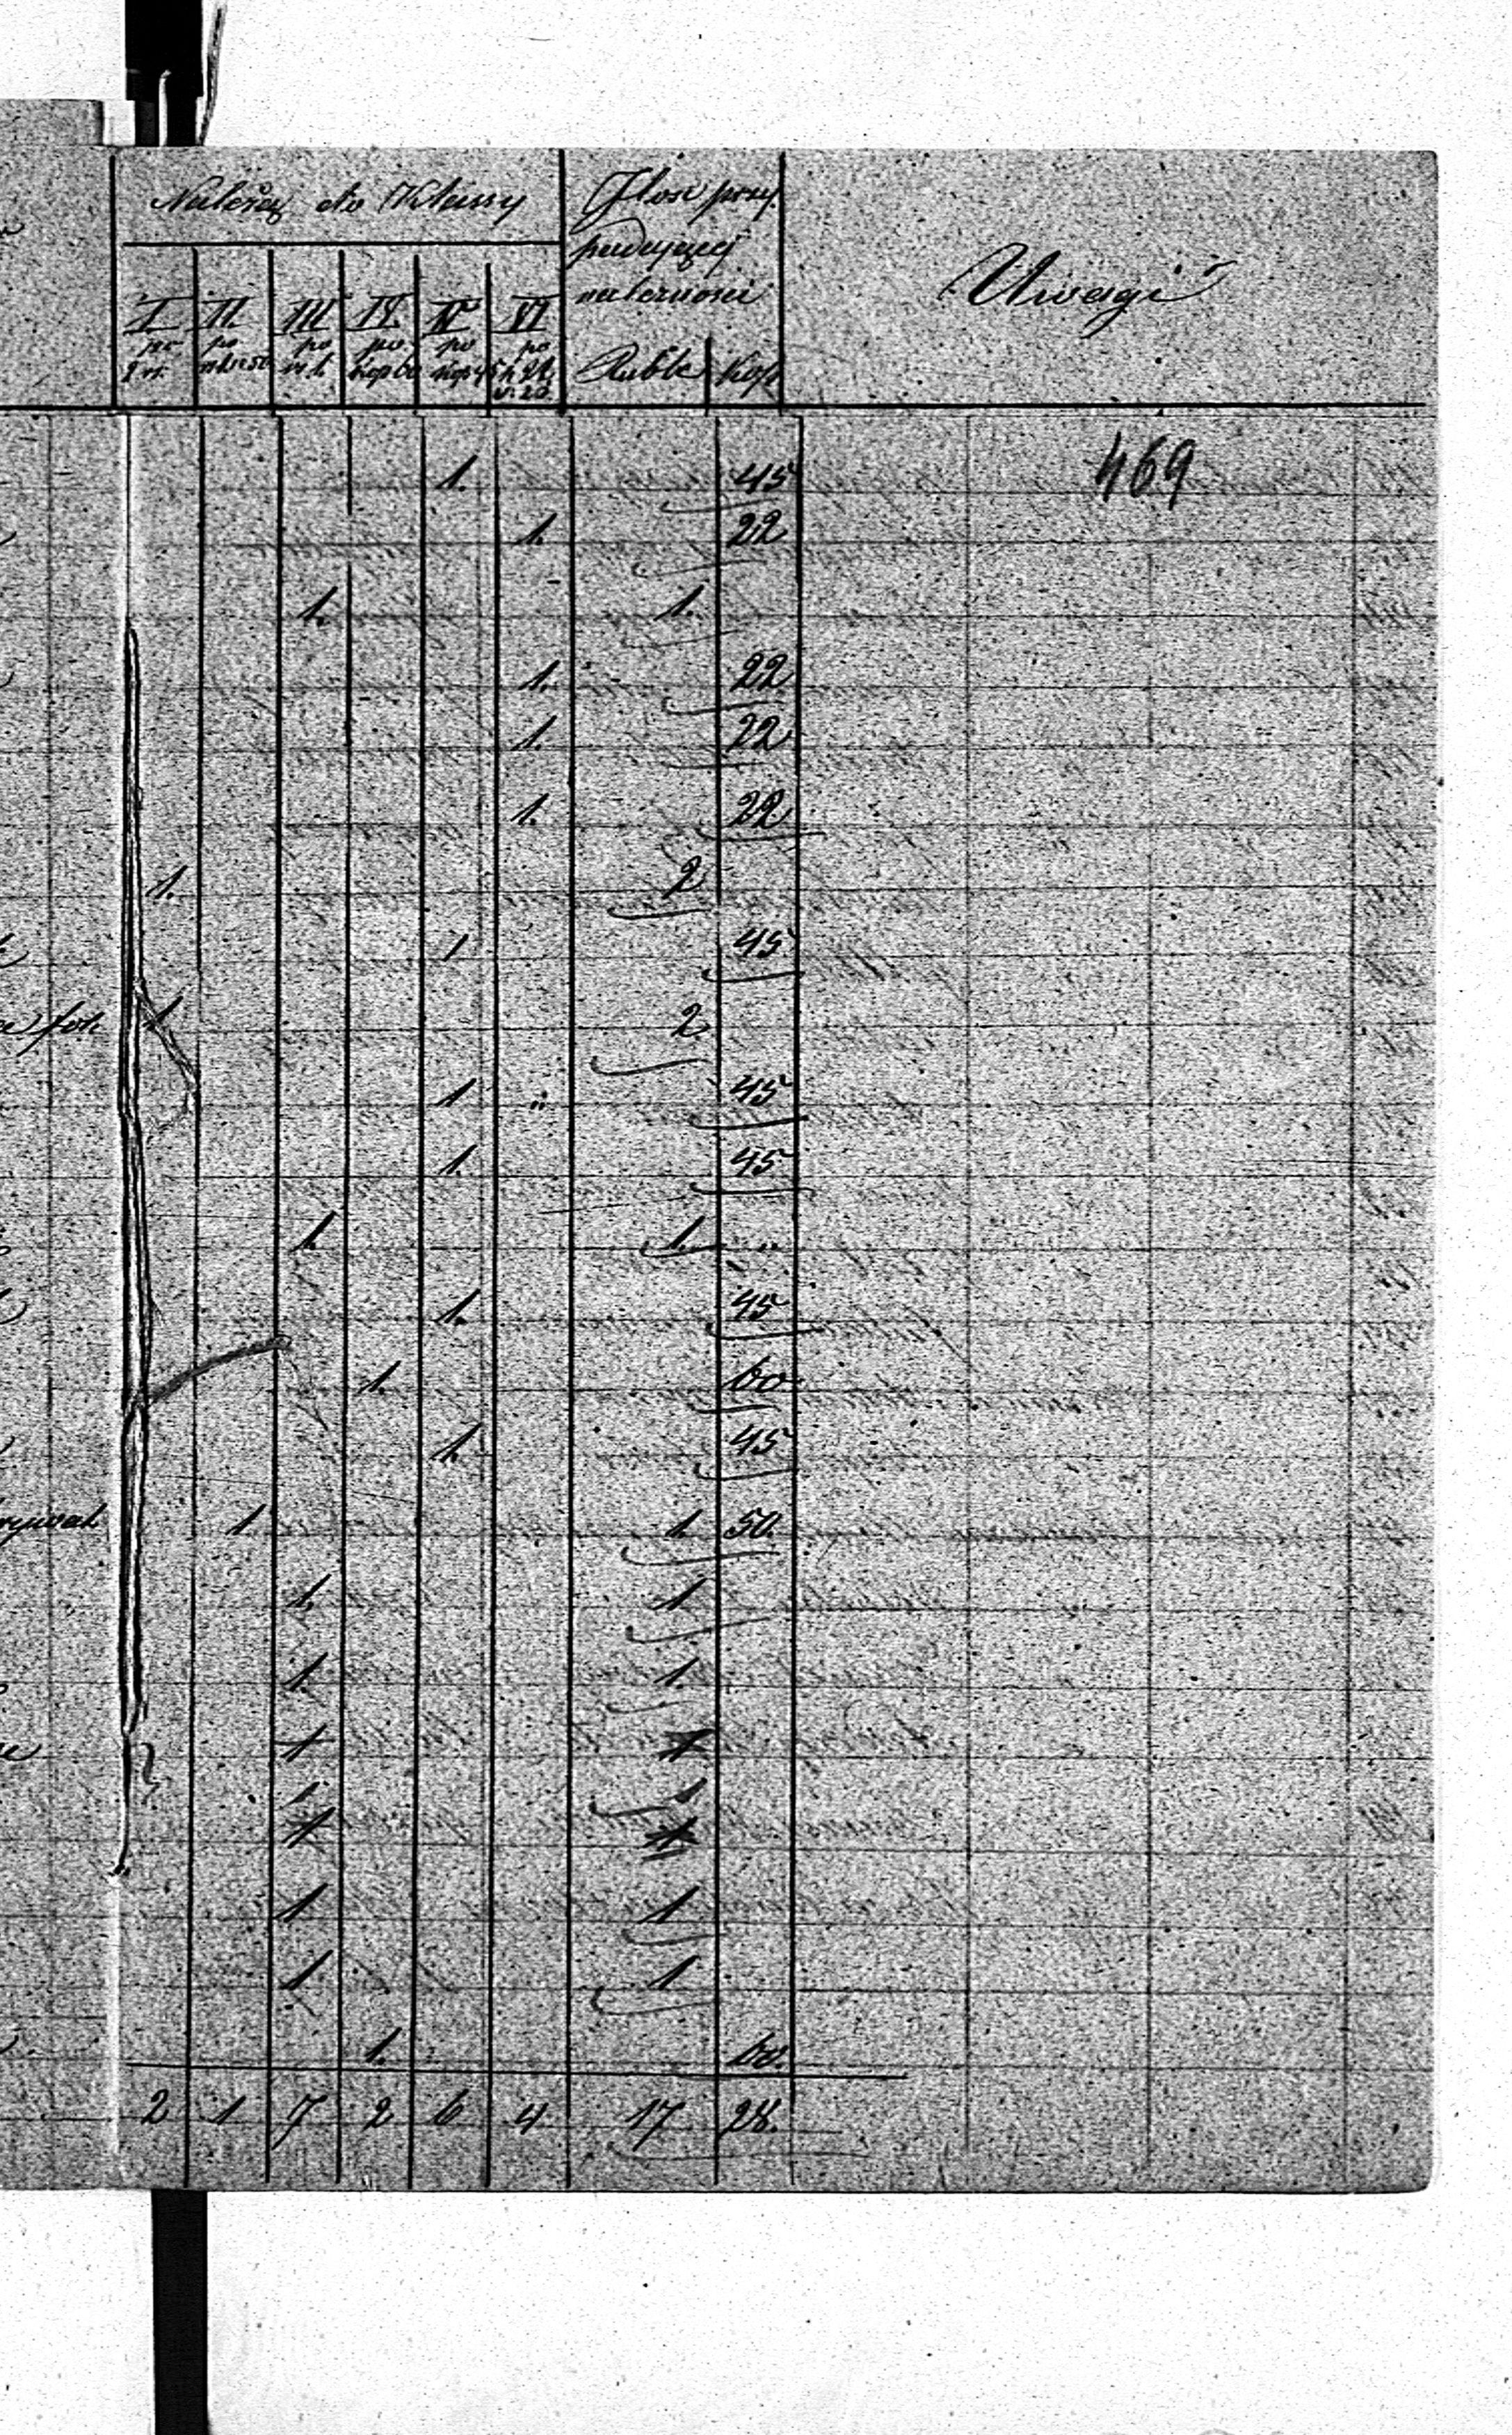 Należą do Klassy
Ilość przy-
padającej
należności
Uwagi
I. II. III IV. V VI
po po po po po po
2 rs. rubl 1 k 50 rs. 1 kop 60 kop 45 k 22
Ruble Kop
469
1. 45
1. 22
1. 1.
1. 22
1. 22
1. 22
1. 2
1 45
1 2
1 45
1. 45
1. 1. „
1. 45
1. 60
1. 45
1 1. 50
1. 1
1. 1.
1 1
1 1
1 1
1 1
1. 60.
2 1 7 2 6 4 17 28.